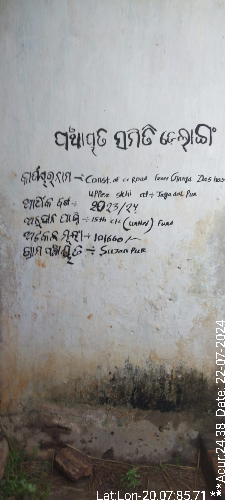 ପଞ୍ଚାୟତ ସମିତି ଡେଲାଙ୍ଗ
କାର୍ଯ୍ୟର ନାମ :- Const. of cc Road from Ganga Das house
upto sahi at :- Jagadal Pur
ଆର୍ଥିକ ବର୍ଷ :- 2023/24
ଅନୁଦାନ ପାଣ୍ଠି :- 15th c/c (untied) Fund
ଅଟକଳ ମୂଲ୍ୟ :- 101660/-
ଗ୍ରାମ ପଞ୍ଚାୟତ :- Sujan Pur
Lat:Lon-20.07:85.71
***Acur24.38 Date: 22-07-2024